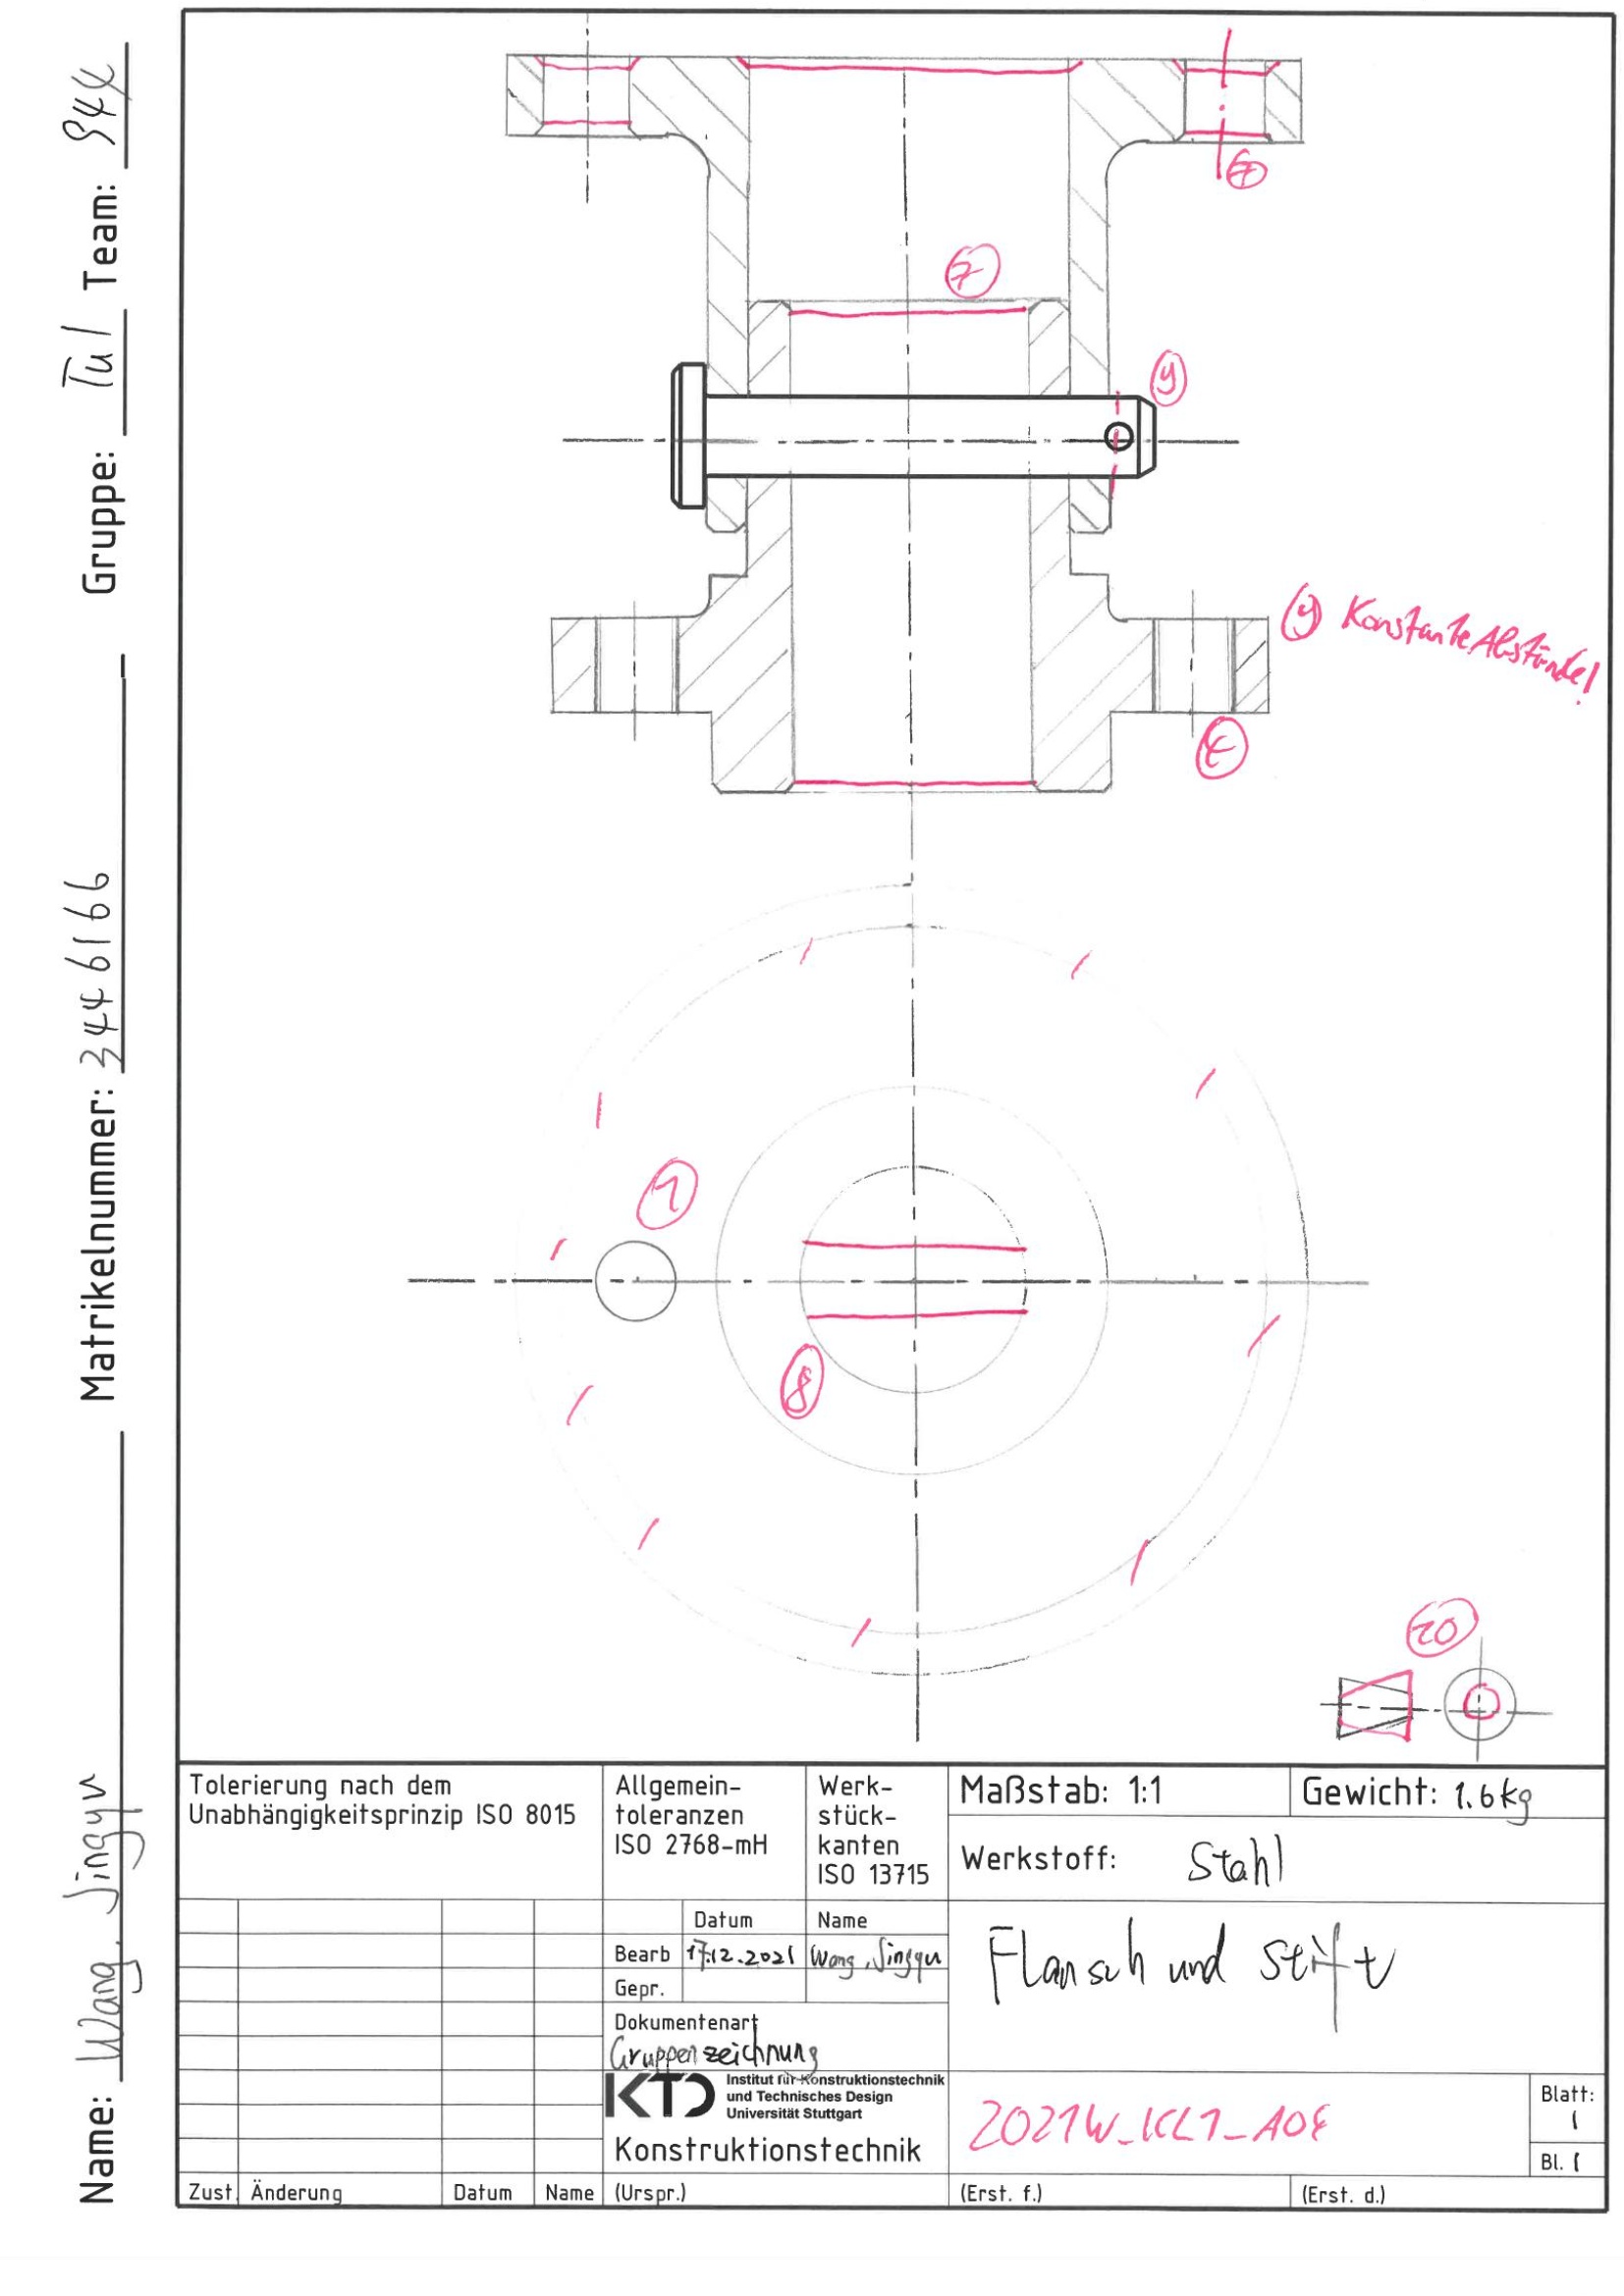 Name: Wang, Jingyu Matrikelnummer: 3446166 Gruppe: Tu1 Team: 944
⑦
⑨
⑨ Konstante Abstände!
①
⑧
⑳
Tolerierung nach dem
Unabhängigkeitsprinzip ISO 8015
Allgemein-
toleranzen
ISO 2768-mH
Werk-
stück-
kanten
ISO 13715
Maßstab: 1:1
Gewicht: 1.6kg
Werkstoff: Stahl
Datum Name
Bearb 17.12.2021 Wang, Jingyu
Gepr.
Flansch und Stift
Dokumentenart
Gruppenzeichnung
KTD
Institut für Konstruktionstechnik
und Technisches Design
Universität Stuttgart
Konstruktionstechnik
Blatt:
1
Bl. 1
Zust. Änderung Datum Name (Urspr.) (Erst. f.) (Erst. d.)